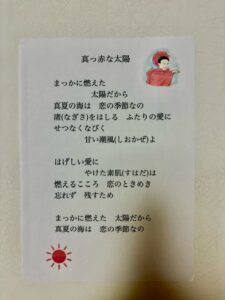 真っ赤な太陽
まっかに燃えた
太陽だから
真夏の海は　恋の季節なの
渚(なぎさ)をはしる　ふたりの愛に
せつなくなびく
甘い潮風(しおかぜ)よ
はげしい愛に
やけた素肌(すはだ)は
燃えるこころ　恋のときめき
忘れず　残すため
まっかに燃えた　太陽だから
真夏の海は　恋の季節なの